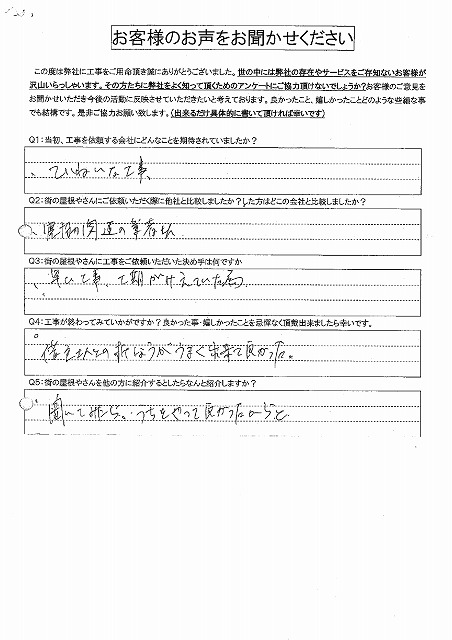 お客様のお声をお聞かせください
この度は弊社に工事をご用命頂き誠にありがとうございました。世の中には弊社の存在やサービスをご存知ないお客様が
沢山いらっしゃいます。その方たちに弊社をよく知って頂くためのアンケートにご協力頂けないでしょうか？お客様のご意見を
お聞かせいただき今後の活動に反映させていただきたいと考えております。良かったこと、嬉しかったことどのような些細な事
でも結構です。是非ご協力お願い致します。(出来るだけ具体的に書いて頂ければ幸いです)
Q1：当初、工事を依頼する会社にどんなことを期待されていましたか？
ていねいな工事
Q2：街の屋根やさんにご依頼いただく際に他社と比較しましたか？した方はどこの会社と比較しましたか？
屋根関連の業者さん
Q3：街の屋根やさんに工事をご依頼いただいた決め手は何ですか
早い工事、工期が
Q4：工事が終わってみていかがですか？良かった事・嬉しかったことを忌憚なく頂戴出来ましたら幸いです。
うまく出来て良かった。
Q5：街の屋根やさんを他の方に紹介するとしたらなんと紹介しますか？
聞いてみたら。うちをやって良かったからと